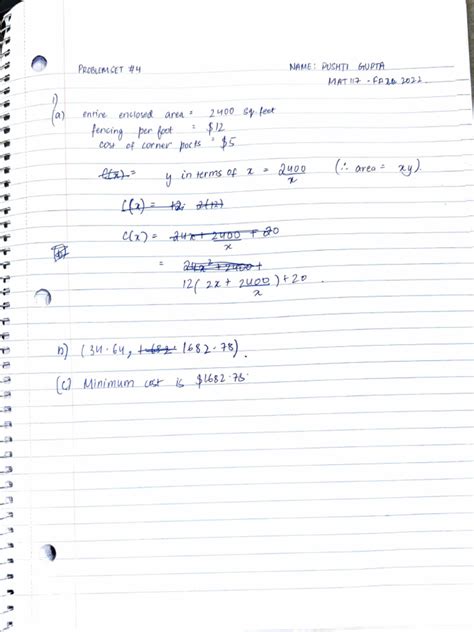 PROBLEM SET #4
NAME: DUSHTI GUPTA
MAT 117 - FA 2022
1)
(a) entire enclosed area = 2400 sq. feet
fencing per foot = $12
cost of corner posts = $5
f(x) = y in terms of x = 2400/x (∴ area = xy).
C(x) = +2. 2(12)
C(x) = 24x + 2400/x + 20
= 24x² + 2400 +
12(2x + 2400/x) + 20.
b) (34.64, 1682 1682.78).
(c) Minimum cost is $1682.78.